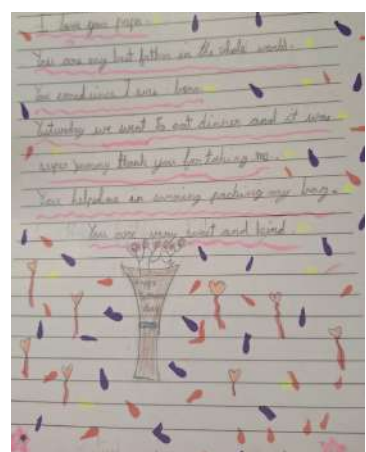 I love you papa.
You are my best father in the whole world.
You since I was born
Yesturday we went to eat dinner and it was
super yummy thank you for taking me.
You helped me in packing my bag.
You are very sweet and kind